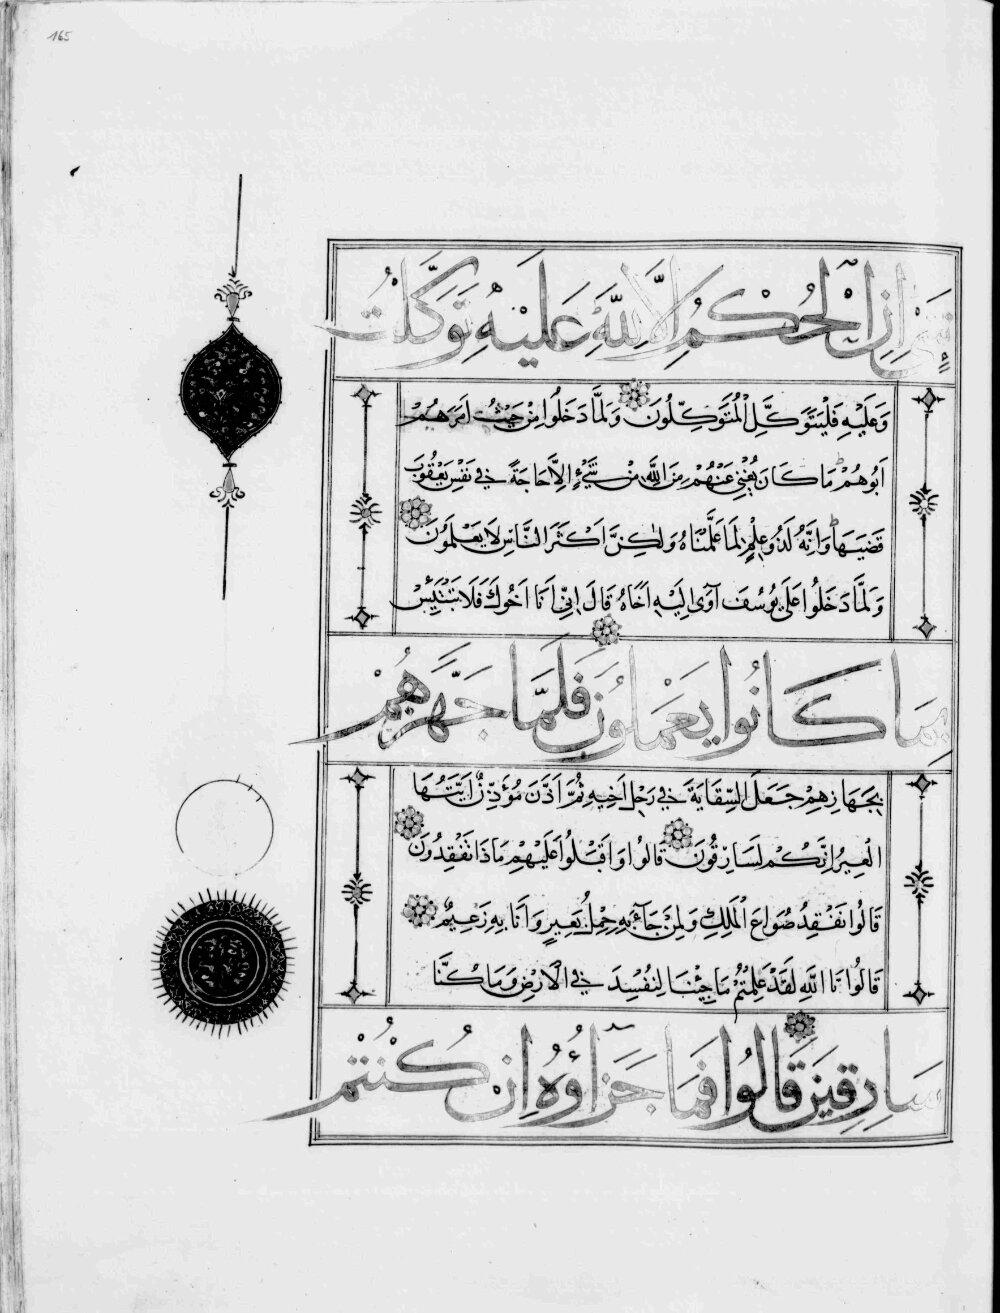 165
شَيْءٍ اِنِ الْحُكْمُ اِلَّا لِلَّهِ عَلَيْهِ تَوَكَّلْتُ
وَعَلَيْهِ فَلْيَتَوَكَّلِ الْمُتَوَكِّلُونَ وَلَمَّا دَخَلُوا مِنْ حَيْثُ اَمَرَهُمْ
اَبُوهُمْ مَا كَانَ يُغْنِي عَنْهُمْ مِنَ اللَّهِ مِنْ شَيْءٍ اِلَّا حَاجَةً فِي نَفْسِ يَعْقُوبَ
قَضٰيهَا وَاِنَّهُ لَذُو عِلْمٍ لِمَا عَلَّمْنَاهُ وَلٰكِنَّ اَكْثَرَ النَّاسِ لَا يَعْلَمُونَ
وَلَمَّا دَخَلُوا عَلٰى يُوسُفَ آوٰى اِلَيْهِ اَخَاهُ قَالَ اِنِّي اَنَا اَخُوكَ فَلَا تَبْتَئِسْ
بِمَا كَانُوا يَعْمَلُونَ فَلَمَّا جَهَّزَهُمْ
بِجَهَازِهِمْ جَعَلَ السِّقَايَةَ فِي رَحْلِ اَخِيهِ ثُمَّ اَذَّنَ مُؤَذِّنٌ اَيَّتُهَا
الْعِيرُ اِنَّكُمْ لَسَارِقُونَ قَالُوا وَاَقْبَلُوا عَلَيْهِمْ مَاذَا تَفْقِدُونَ
قَالُوا نَفْقِدُ صُوَاعَ الْمَلِكِ وَلِمَنْ جَاءَ بِهِ حِمْلُ بَعِيرٍ وَاَنَا بِهِ زَعِيمٌ
قَالُوا تَا اللَّهِ لَقَدْ عَلِمْتُمْ مَا جِئْنَا لِنُفْسِدَ فِي الْاَرْضِ وَمَا كُنَّا
سَارِقِينَ قَالُوا فَمَا جَزَاؤُهُ اِنْ كُنْتُمْ